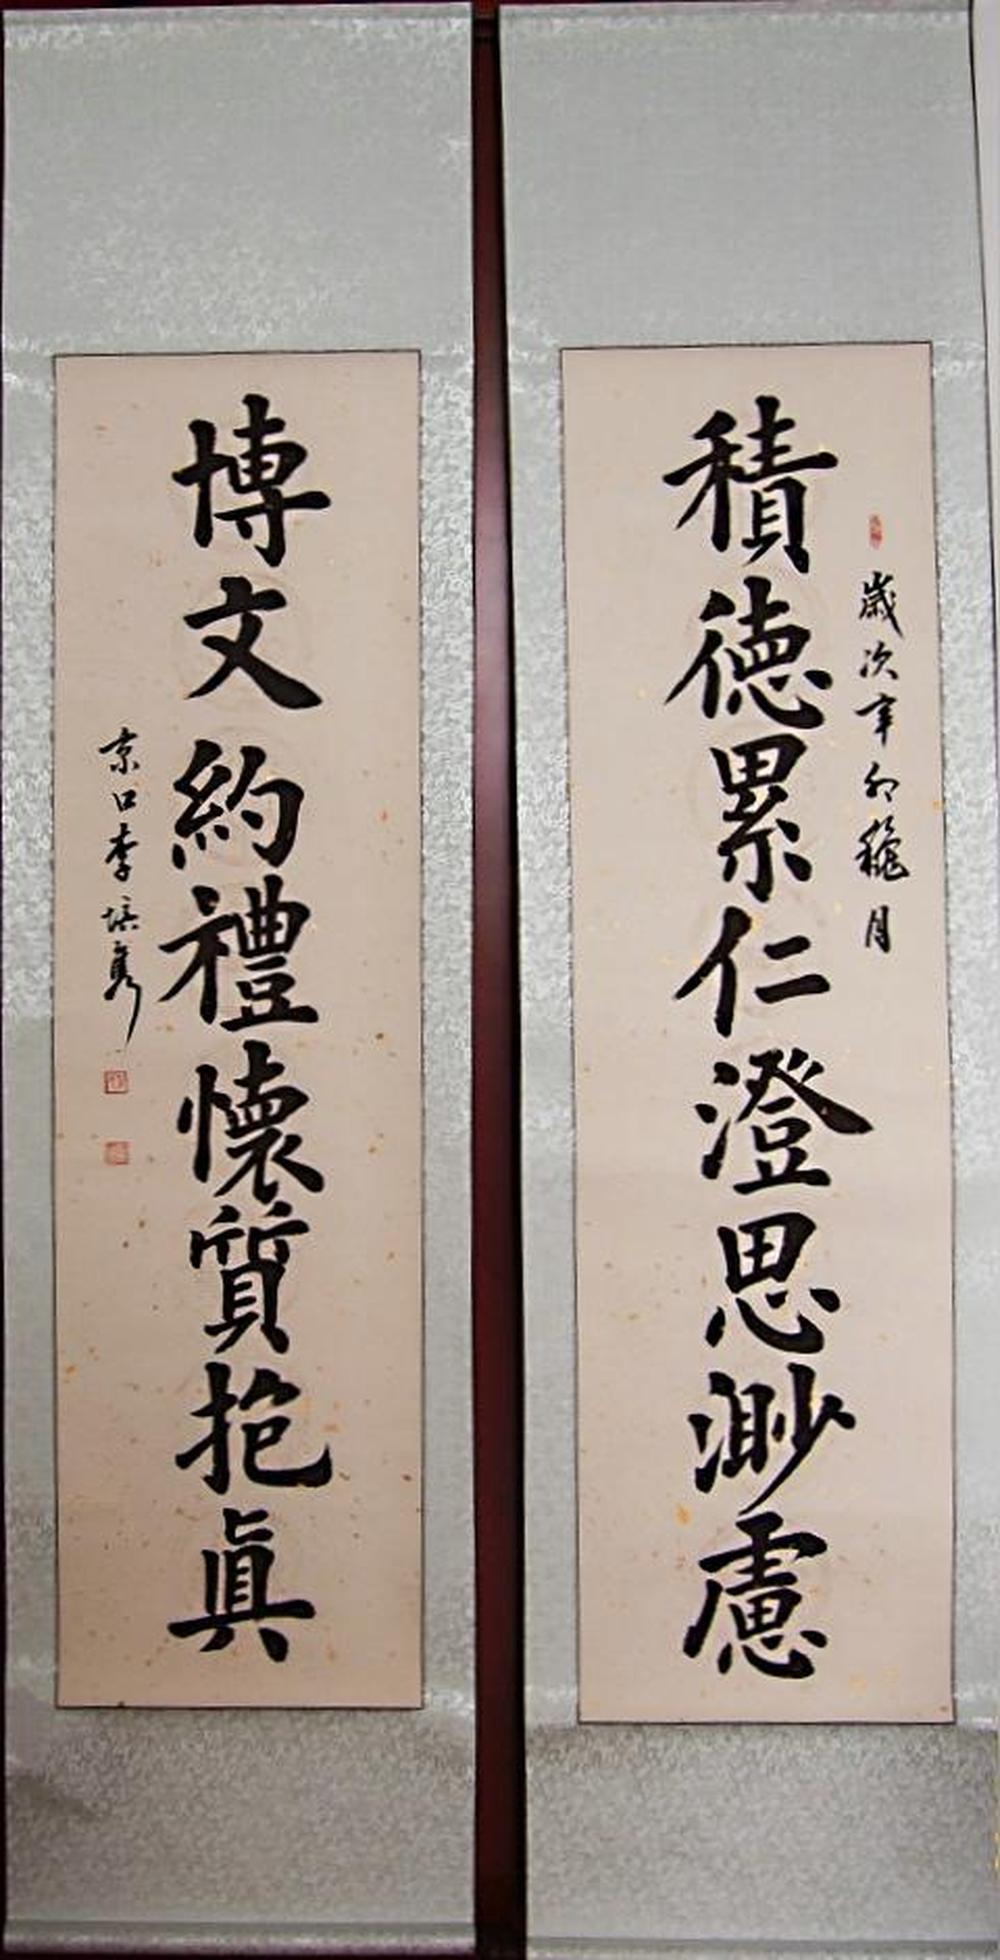 歲次辛卯穐月
積德累仁澄思渺慮
博文約禮懷質抱眞
京口李培隽